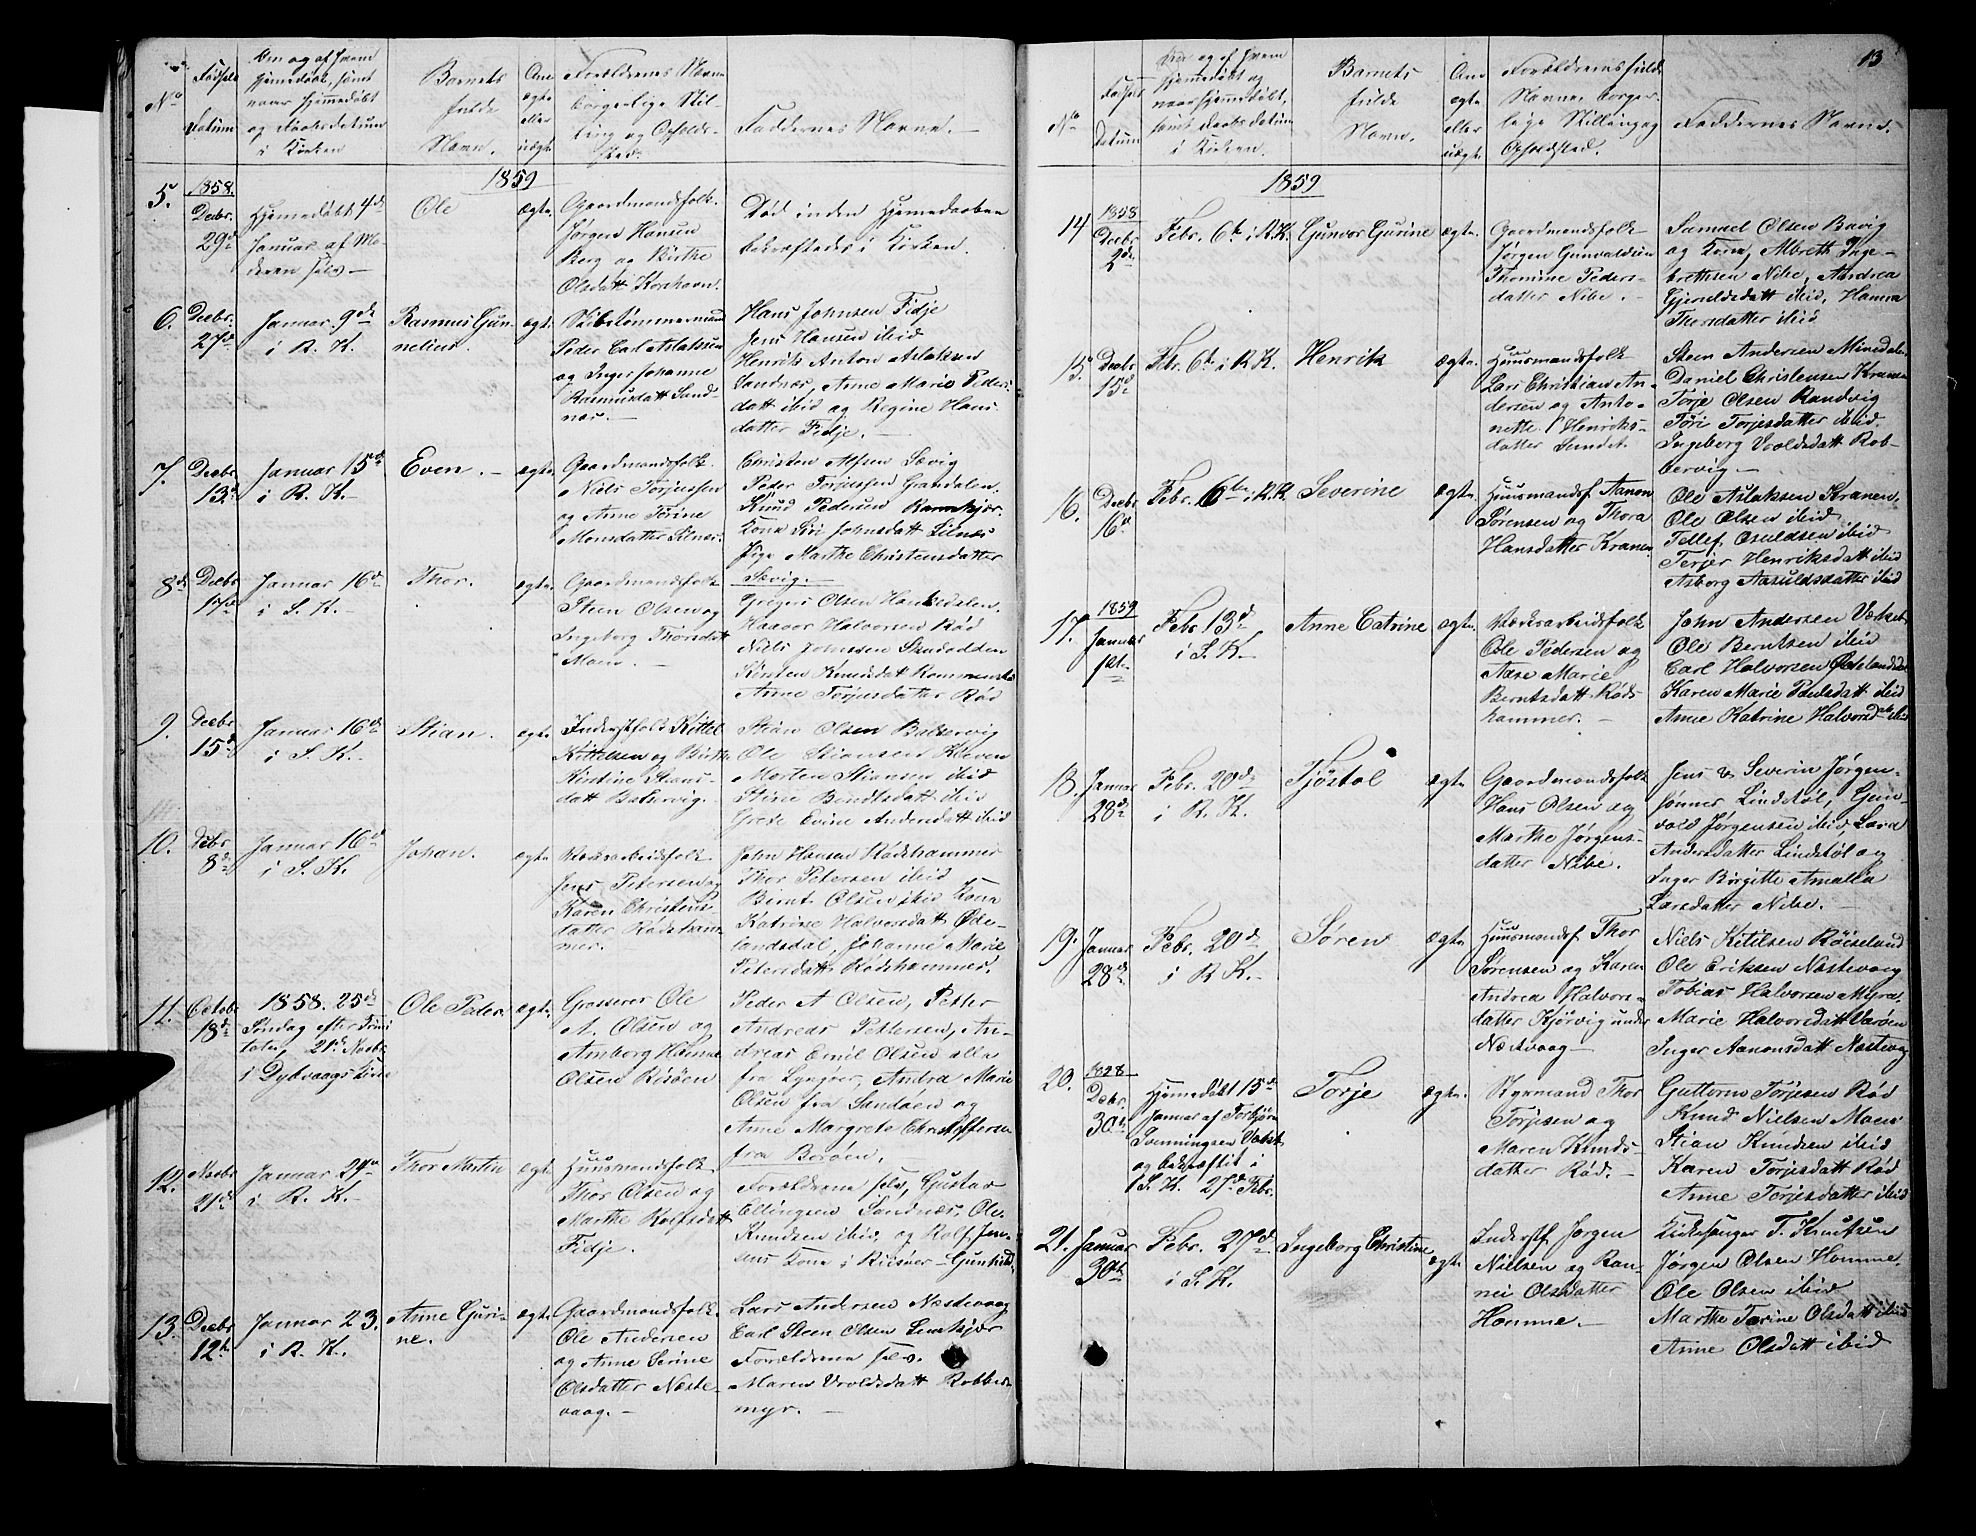 No
Fødsels
Datum
Om og af hvem
hjemmedøbt, samt
naar hjemmedøbt
og Daabsdatum
i Kirken
Barnets
fulde
Navn.
Om
ægte
eller
uægte
Forældrenes Navne
borgerlige Stil-
ling og Opholds-
sted.
Faddernes Navne.
1859
5.
1858.
Decbr.
29d
Hjemmedøbt 4d
Januar af Mo-
deren selv
Ole
ægte.
Gaardmandsfolk.
Jørgen Hansen
Berg og Birthe
Olsdatt Korshavn.
Død inden Hjemmedaaben
bekræftedes i Kirken.
6.
Decbr.
27d
Januar 9de
i R. K.
Rasmus Gun-
nelius.
ægte.
Peder Carl Aslaksen
og Inger Johanne
Rasmusdatt Sand-
næs.
Hans Johnsen Fidje
Jens Hansen ibid
Henrik Anton Aslaksen
Sandnæs, Anne Marie Peders-
datt ibid og Regine Hans-
datter Fidje.
7.
Decbr
13d
Januar 15de
i R. K.
Even.
ægte
Gaardmandsfolk.
Niels Torjussen
og Anne Terine
Monsdatter Lilnes.
Christen Alfsen Sævig
Peder Torjussen Grændalen,
Knud Pedersen
Kona Siri Johnsdatt Lilnes
Pige Marthe Christensdatter
Sævig.
8de
Decbr
17de
Januar 16de
i S. K.
Thor.
ægte
Gaardmandsfolk
Steen Olsen og
Ingeborg Thorsdatt
Moen.
Gregers Olsen
Haavor Halvorsen Rød
Niels Johnsen
Kirsten Knudsdatt
Anne Torjusdatter Rød
9.
Decbr
15d
Januar 16de
i S. K.
Stian.
ægte.
Inderstfolk Kittel
Kittelsen og Birthe
Kirstine Stians-
datt Balsvvig.
Stian Olsen Balsvvig
Ole Stiansen Kleven
Morten Stiansen ibid
Stine Bendtsdatt ibid
Grete Evine Andersdatt ibid
10.
Decbr
8de
Januar 16de
i S. K.
Johan.
ægte
Værksarbeidsfolk
Jens Petersen og
Karen Christens-
datter Rødsham-
mer.
John Hansen Rødshammer
Thor Petersen ibid
Bernt Olsen ibid Kona
Katrine Halvorsdatt Øde-
landsdal, Johanne Marie
Petersdatt Rødshammer.
11.
Octobr
18d
1858. 25de
Søndag efter Trini-
tatis, 21de Novbr.
i Dybvaags Kirke
Ole Peder.
ægte.
Grosserer Ole
A. Olsen og
Amborg Hanne
Olsen Risøen
Peder A Olsen, Petter
Andreas Pettersen, An-
dreas Emil Olsen alle
fra Lyngøer, Andrea Marie
Olsen fra Sandøen og
Anne Margrete Christoffersen
fra Borøen.
12.
Novbr
21d
Januar 29de
i R. K.
Thor Martin
ægte
Huusmandsfolk
Thor Olsen og
Marthe Rolfsdatt
Fidje.
Forældrene selv, Gustav
Ellingsen Sandnæs, Ole
Knudsen ibid, og Rolf Jen-
sens Kona i Riisøer Gunhild.
13.
Decbr
12te
Januar 23.
i R. K.
Anne Guri-
ne.
ægte
Gaardmandsfolk
Ole Andersen
og Anne Serine
Olsdatter Næste-
vaag.
Lars Andersen Næstevaag
Carl Steen Olsen
Forældrene selv.
Maren Vroldsdatt Robber-
myr.
13
No
Fødsels
Datum
Om og af hvem
hjemmedøbt og
naar hjemmedøbt,
samt Daabsdatum
i Kirken.
Barnets
fulde
Navn.
Om
ægte
eller
uægte
Forældrenes fulde
Navne, borger-
lige Stilling og
Opholdssted.
Faddernes Navne.
1859
14
1858
Decbr
2de
Febr. 6te i R. K.
Gunvor Gurine
ægte.
Gaardmandsfolk
Jørgen Gunvaldsen
Thomine Peders-
datter Nibe.
Samuel Olsen Bavig
og Kona, Albreth Inge-
brethsen Nibe, Andrea
Gjeruldsdatt ibid, Hanna
Thorsdatter ibid
15.
Decbr
15d
Febr. 6te i R. K.
Henrik
ægte.
Huusmandsfolk
Lars Christian An-
dersen og Anto-
nette Henriks-
datter Sundet
Steen Andersen Minedalen
Daniel Christensen Kranen
Torje Olsen Randvig
Tøri Torjesdatter ibid.
Ingeborg Vroldsdatt Rob-
bervig.
16.
Decbr
16de
Febr. 6te i R. K.
Severine
ægte.
Huusmandsf. Aanon
Sørensen og Thora
Hansdatter Kranen
Ole Aslaksen Kranen,
Ole Olsen ibid
Tellef Osuldsen ibid
Terjer Henriksdatt ibid
Asborg Aasuldsdatter ibid
17.
1859
Januar
1ste
Febr 13d
i S. K.
Anne Catrine
ægte.
Værksarbeidsfolk
Ole Pedersen og
Aase Marie
Berntsdatt Røds-
hammer.
John Andersen
Ole Berntsen ibid
Carl Halvorsen Ødelandsdal
Karen Marie Poulsdatt ibid
Anne Katrine Halvorsdatt ibid
18.
Januar
28de
Febr. 20de
i R. K.
Tjøstol
ægte.
Gaardmandsfolk
Hans Olsen og
Marthe Jørgens-
datter Nibe.
Jens & Severin Jørgen-
sønner Lindstøl, Gun-
vald Jørgensen ibid, Sara
Andersdatter Lindstøl og
Inger Birgitte Amalia
Larsdatter Nibe.
19.
Januar
28de
Febr. 20de
i R K.
Søren
ægte.
Huusmandsf. Thor
Sørensen og Karen
Andrea Halvors-
datter Kjørvig under
Næstvaag
Niels Kitilsen Røiseland
Ole Eriksen Næstevaag
Tobias Halvorsen Myra,
Marie Halvorsdatt Varøen
Inger Aanonsdatt Næstevaag
20.
1828
Decbr.
30te
Hjemmedøbt 15de
Januar af Torbjørn
Tvenningsen
og bekræftet i
S. K. 27de Febr.
Torje
ægte.
Styrmand Thor
Torjesen og
Maren Knuds-
datter Rød.
Guttorm Torjesen Rød
Knud Nielsen Moen
Stian Knudsen ibid
Karen Torjesdatt Rød
Anne Torjesdatter ibid
21.
Januar
30te
Febr. 27de
i S. K.
Ingeborg Christine
ægte
Inderstf. Jørgen
Nielsen og Ran-
nei Olsdatter
Homme.
Kirkesanger T. Knutsen
Jørgen Olsen Homme,
Ole Olsen ibid
Marthe Terine Olsdatt ibid
Anne Olsdatt ibid